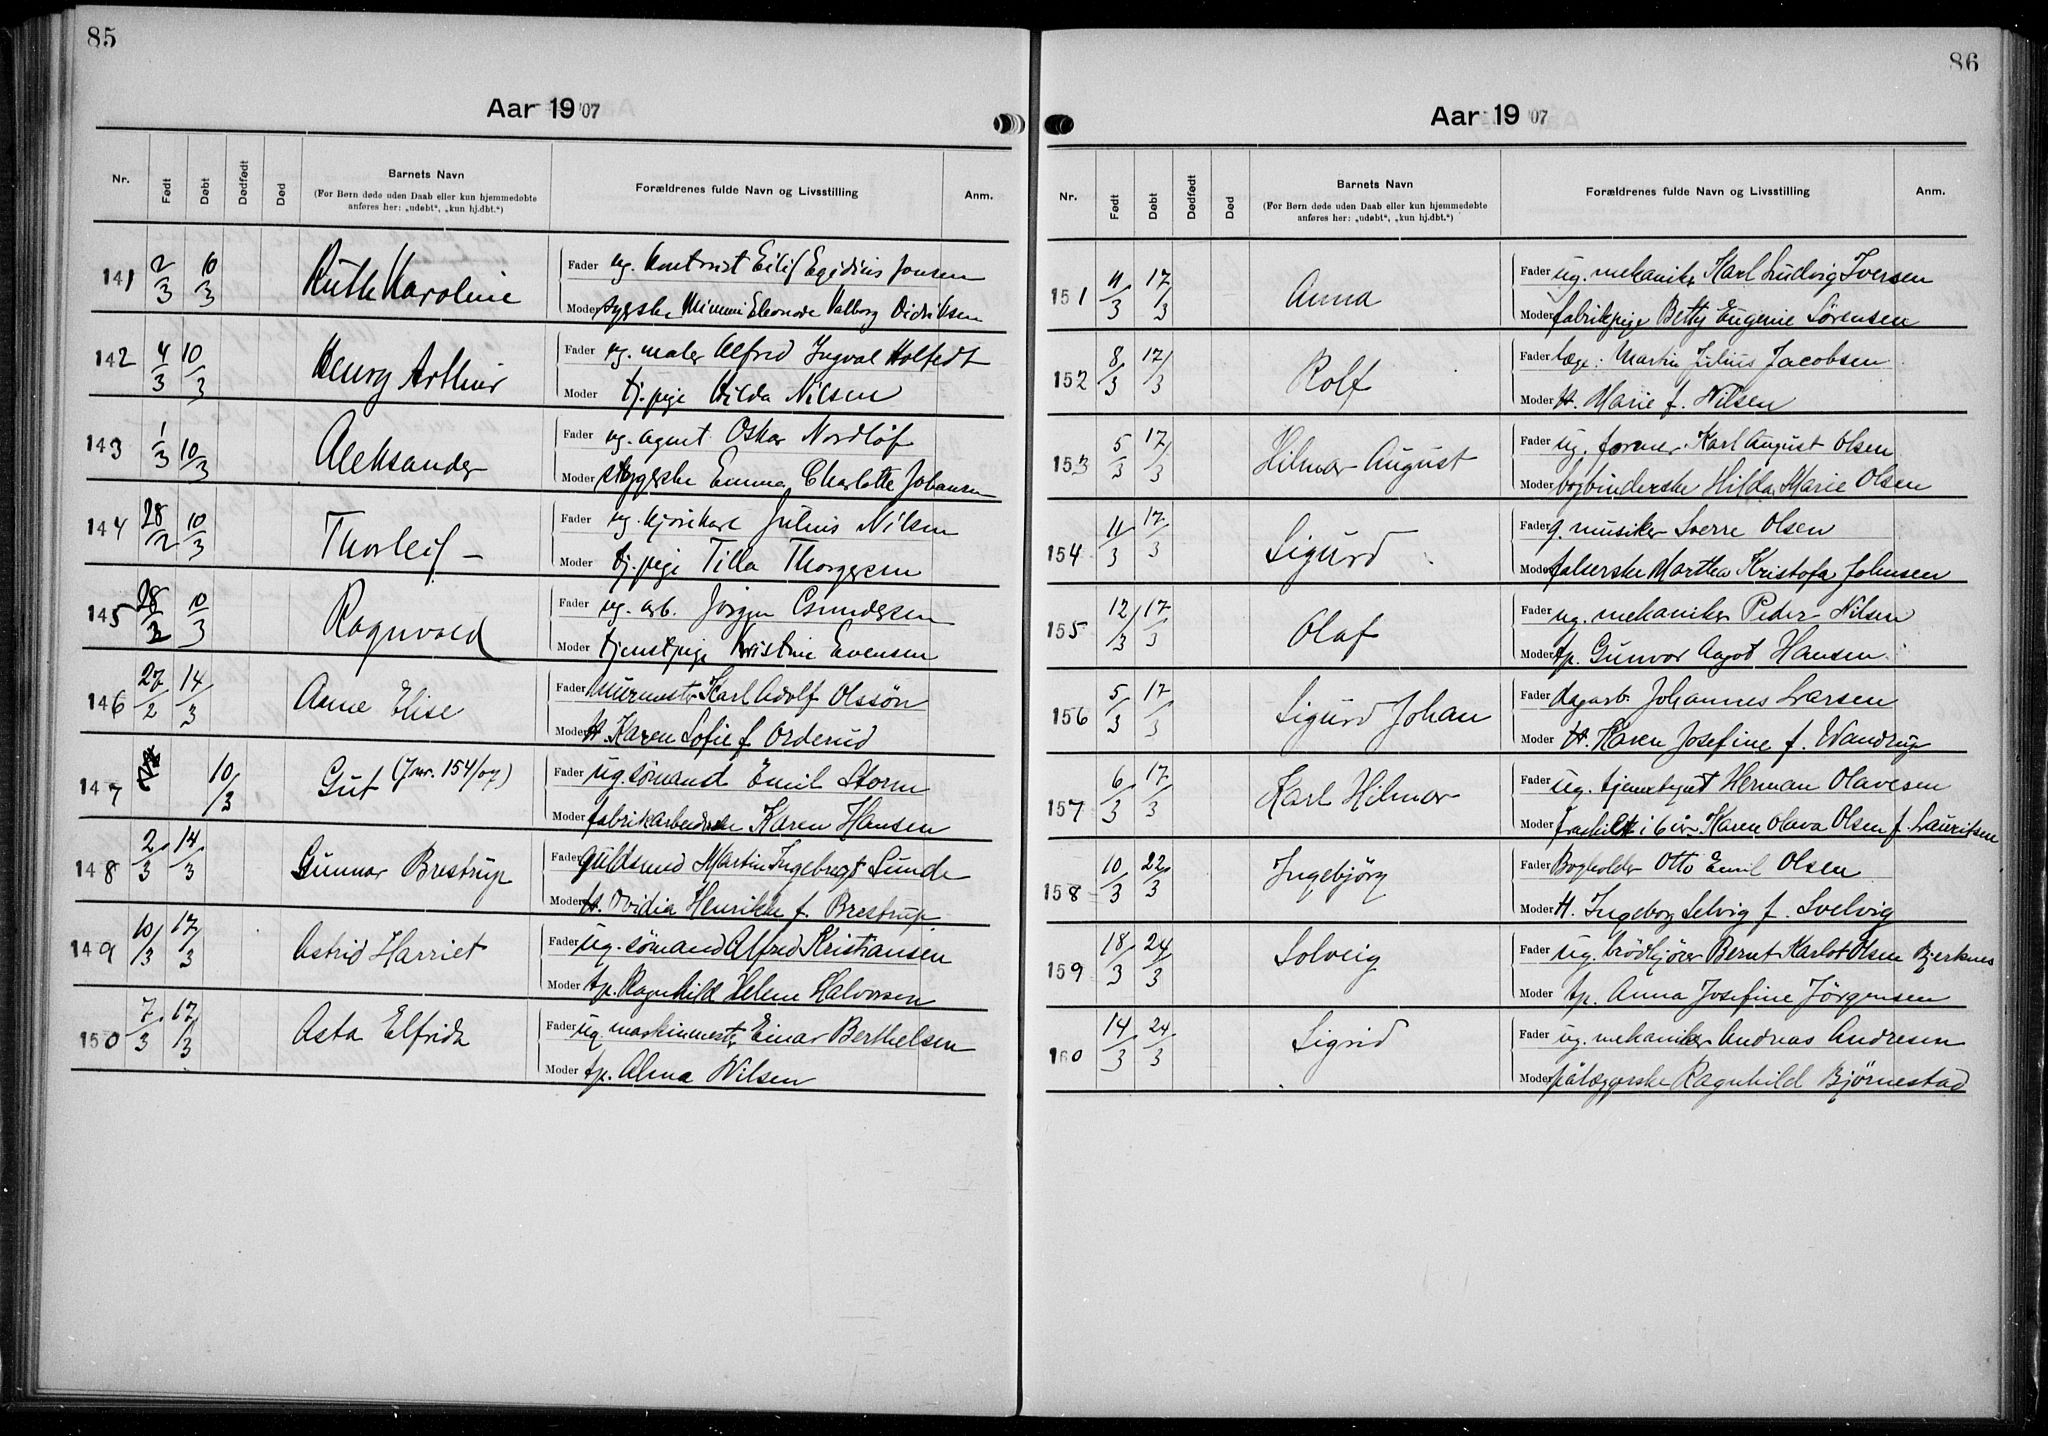 85
Aar 1907
Nr. Født Døbt Dødfødt Død Barnets Navn Forældrenes fulde Navn og Livsstilling Anm.
(For Børn døde uden Daab eller kun hjemmedøbte
anføres her: „udøbt“, „kun hj.dbt.“)
141 2/3 10/3 Ruth Karoline Fader ug. kontorist Eilif Egidius Jonsen
Moder sygerske Mimmi Eleonore Valborg Didriksen
142 4/3 10/3 Henry Arthur Fader ug. maler Alfred Ingval Holfedt
Moder tj. pige Hilda Nilsen
143 1/3 10/3 Aleksander Fader ug. agent Oskar Nordlöf
Moder strygerske Emma Charlotte Johansen
144 28/2 10/3 Thorleif – Fader ug. kjørekarl Julius Nilsen
Moder tj. pige Tilla Thorgersen
145 28/2 10/3 Ragnvald Fader ug. arb. Jörgen Gundersen
Moder tjenestpige Kristine Evensen
146 27/2 14/3 Anne Elise Fader murmestr. Karl Adolf Olssön
Moder H. Karen Sofie f. Orderud
147 10/3 Gut (Jnr. 154/07) Fader ug. sömand Emil Storm
Moder fabrikarbeiderske Karen Hansen
148 2/3 14/3 Gunnar Brestrup Fader guldsmed Martin Ingebregt Sunde
Moder H. Ovidia Henrikke f. Brestrup.
149 10/3 17/3 Astrid Harriet Fader ug. sömand Alfred Kristiansen
Moder tp. Ragnhild Helene Halvorsen
150 7/3 17/3 Asta Elfrida Fader ug. maskinmestr Einar Berthelsen
Moder tp. Alma Nilsen
86
Aar 1907
Nr. Født Døbt Dødfødt Død Barnets Navn Forældrenes fulde Navn og Livsstilling Anm.
(For Børn døde uden Daab eller kun hjemmedøbte
anføres her: „udøbt“, „kun hj.dbt.“)
151 11/3 17/3 Anna Fader ug. mekanik. Karl Ludvig Iversen
Moder fabrikpige Betty Eugenie Sörensen
152 8/3 17/3 Rolf Fader læge: Martin Julius Jacobsen
Moder H. Marie f. Nilsen
153 5/3 17/3 Hilmar August Fader ug. former Karl August Olsen
Moder bogbinderske Hilda Marie Olsen
154 11/3 17/3 Sigurd Fader g. musiker Sverre Olsen
Moder falserske Martha Kristofa Johnsen
155 12/3 17/3 Olaf Fader ug. mekaniker Peder Nilsen
Moder tp. Gunvor Aagot Hansen
156 5/3 17/3 Sigurd Johan Fader dagarb. Johannes Larsen
Moder H. Karen Josefine f. Wandrup
157 6/3 17/3 Karl Hilmar Fader ug. tjenestegut Herman Olavesen
Moder fraskilt i 6 år Karen Olava Olsen f. Lauritsen
158 10/3 22/3 Ingebjörg Fader Bogholder Otto Emil Olsen
Moder H. Ingeborg Selvig f. Svelvig
159 18/3 24/3 Solveig Fader ug. brödkjörer Bernt Karlot Olsen Bjerknes
Moder tp. Anna Josefine Jörgensen
160 14/3 24/3 Sigrid Fader ug. mekaniker Andreas Andresen
Moder pålæggerske Ragnhild Bjørnestad